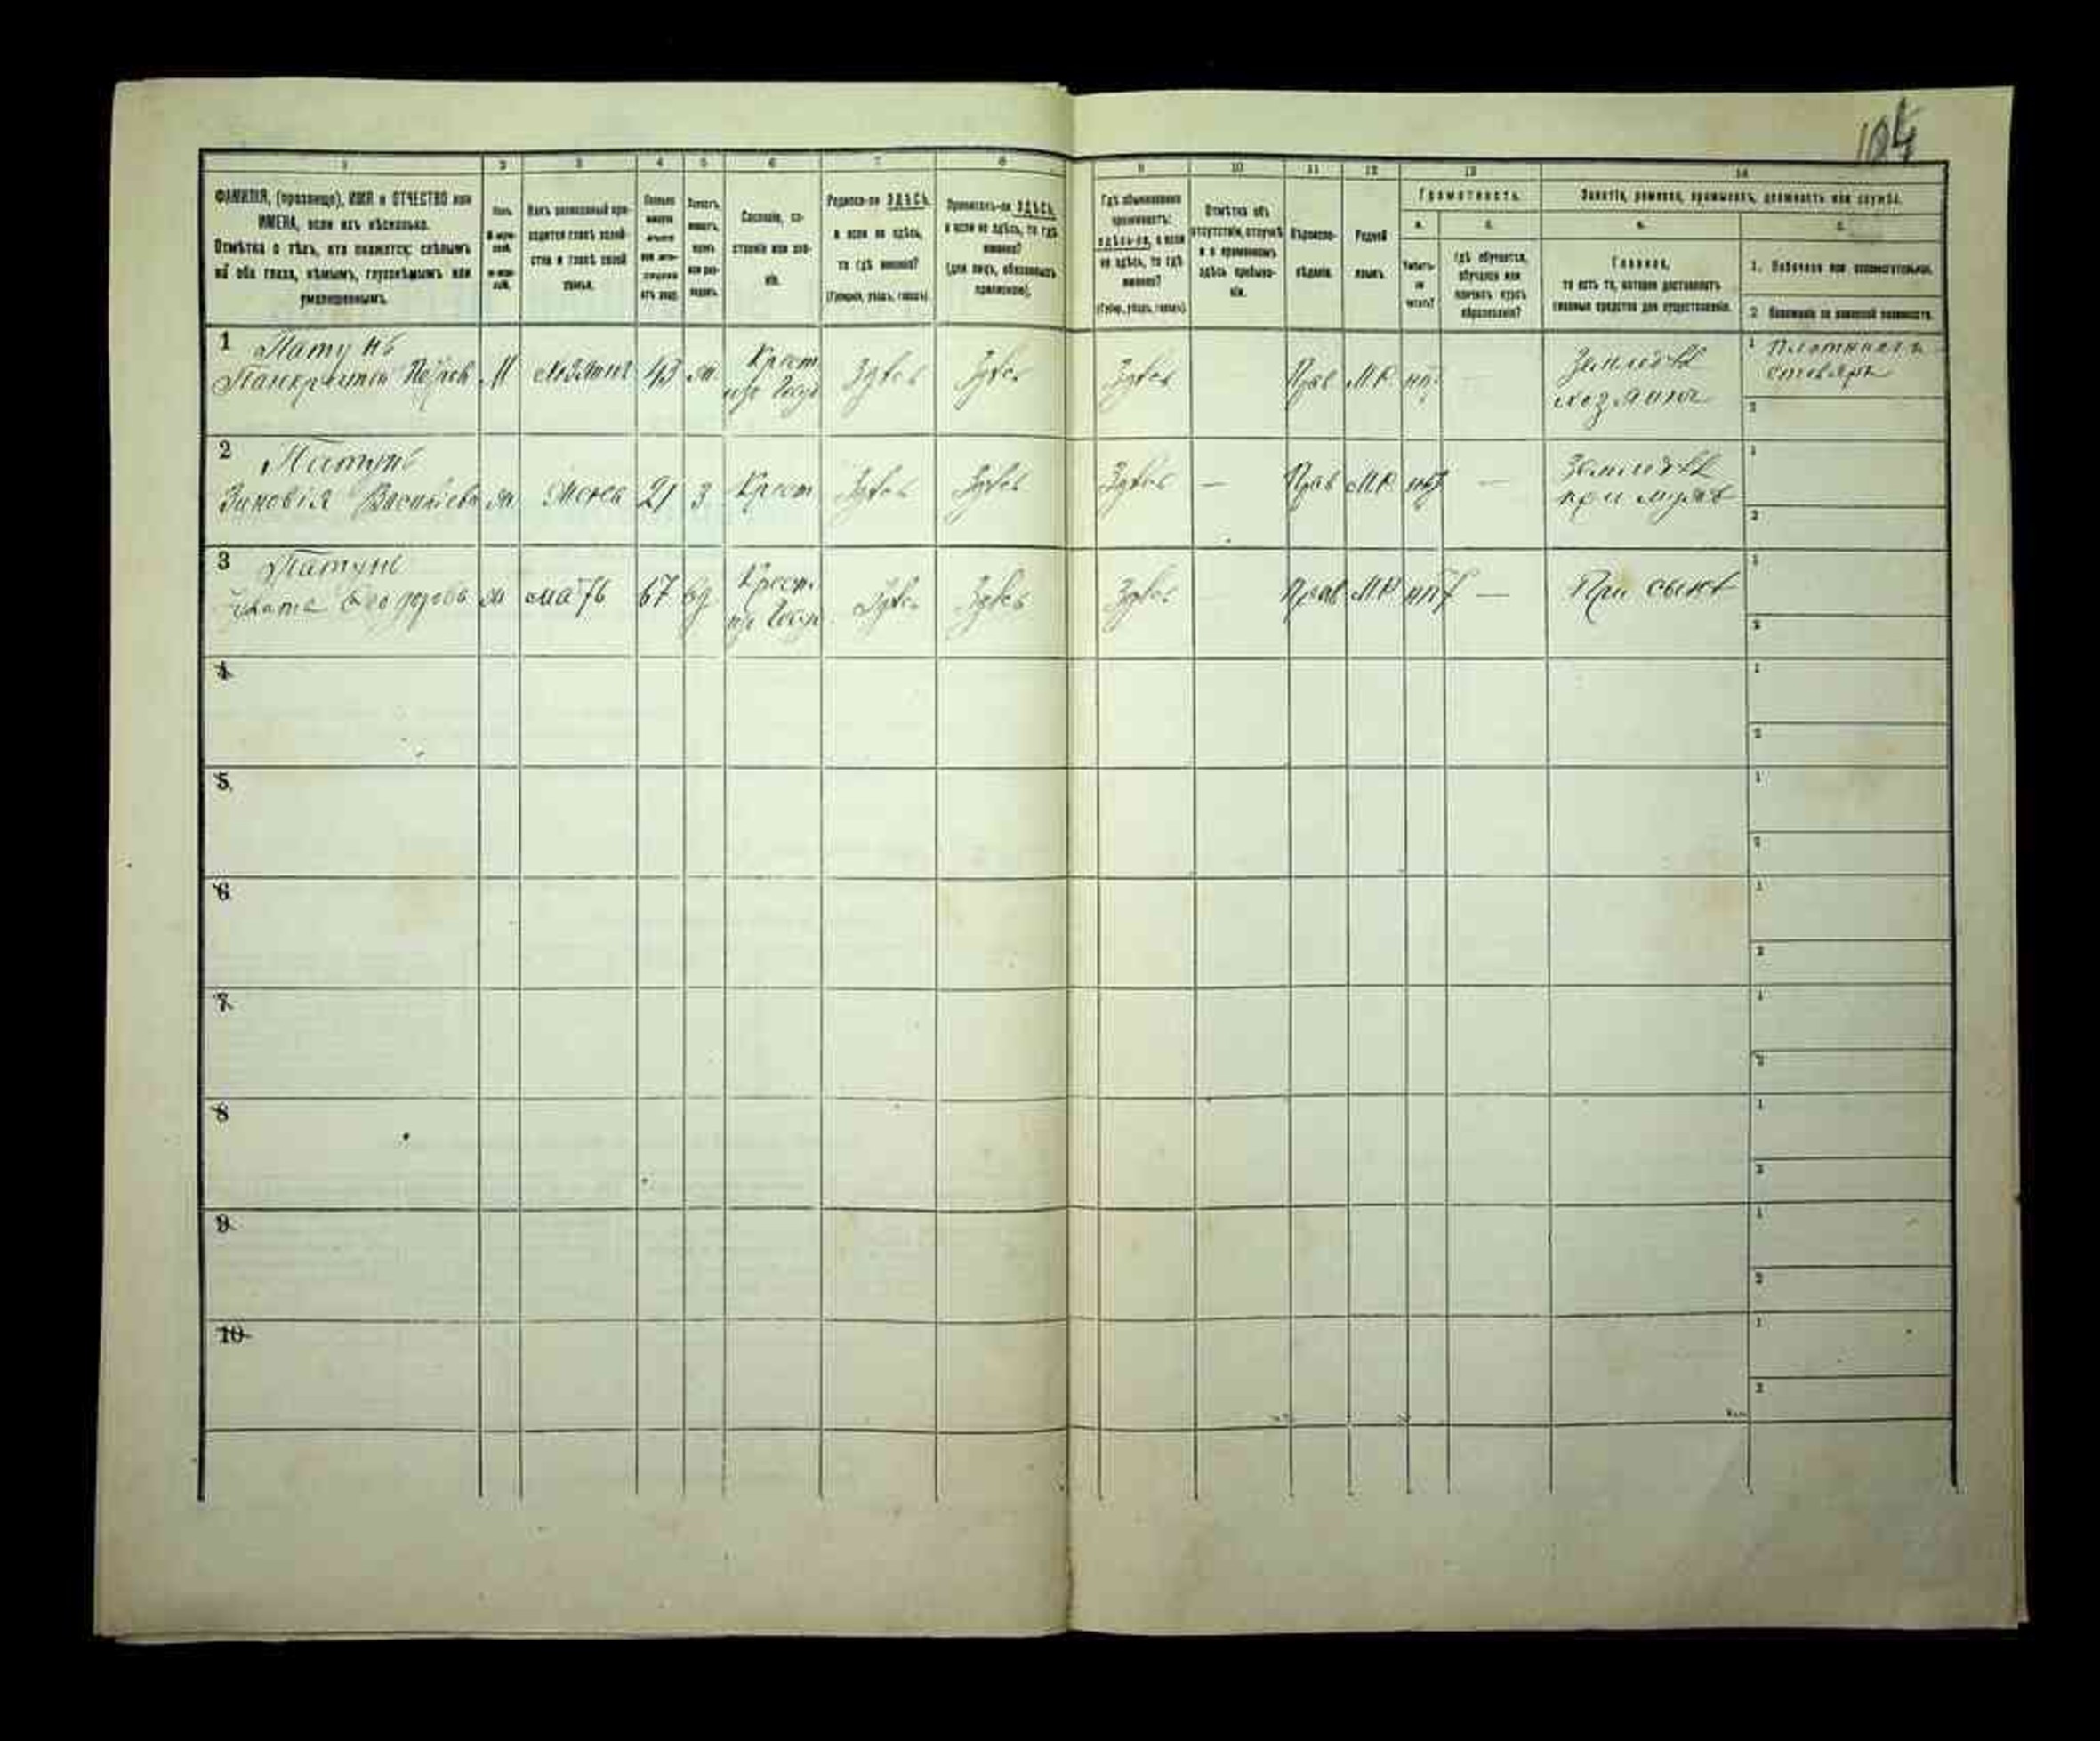 104
1 2 3 4 5 6 7 8 9 10 11 12 13 14
ФАМИЛІЯ, (прозвище), ИМЯ и ОТЧЕСТВО или
ИМЕНА, если ихъ нѣсколько.
Отмѣтка о тѣхъ, кто окажется: слѣпымъ
на оба глаза, нѣмымъ, глухонѣмымъ или
умалишеннымъ.
Полъ.
М-муж-
ской.
Ж-жен-
скій.
Какъ записанный при-
ходится главѣ хозяй-
ства и главѣ своей
семьи.
Холостъ,
женатъ,
вдовъ
или раз-
веденъ.
Сословіе, со-
стояніе или зва-
ніе.
Родился-ли ЗДѢСЬ,
а если не здѣсь,
то гдѣ именно?
(Губернія, уѣздъ, городъ).
Приписанъ-ли ЗДѢСЬ,
а если не здѣсь, то гдѣ
именно?
(для лицъ, обязанныхъ
припискою).
Гдѣ обыкновенно
проживаетъ:
здѣсь-ли, а если
не здѣсь, то гдѣ
именно?
(Губер., уѣздъ, городъ).
Отмѣтка объ
отсутствіи, отлучкѣ
и о временномъ
здѣсь пребыва-
ніи.
Вѣроиспо-
вѣданіе.
Родной
языкъ.
Грамотность.
а. б.
Умѣетъ-
ли
читать?
Гдѣ обучается,
обучался или
кончилъ курсъ
образованія?
Занятіе, ремесло, промыселъ, должность или служба.
а. б.
Главное,
то есть то, которое доставляетъ
главныя средства для существованія.
1. Побочное или вспомогательное.
2. Положеніе по воинской повинности.
1 Патунъ М хозяинъ 43 ж Крест Здѣсь Здѣсь Здѣсь Прав М.Р нѣт Земледѣл 1 Плотникъ и
Петров из Госуд хозяинъ столяръ
2
2 Патунъ ж жена 21 З Крест Здѣсь Здѣсь Здѣсь — Прав М.Р нѣт — Земледѣл 1
Зиновія Васильева при мужѣ 2
3 Патунъ ж мать 67 вд Крест. Здѣсь Здѣсь Здѣсь Прав М.Р нѣт — При сынѣ 1
из Госуд 2
4 1
2
5 1
2
6 1
2
7 1
2
8 1
2
9 1
2
10 1
2